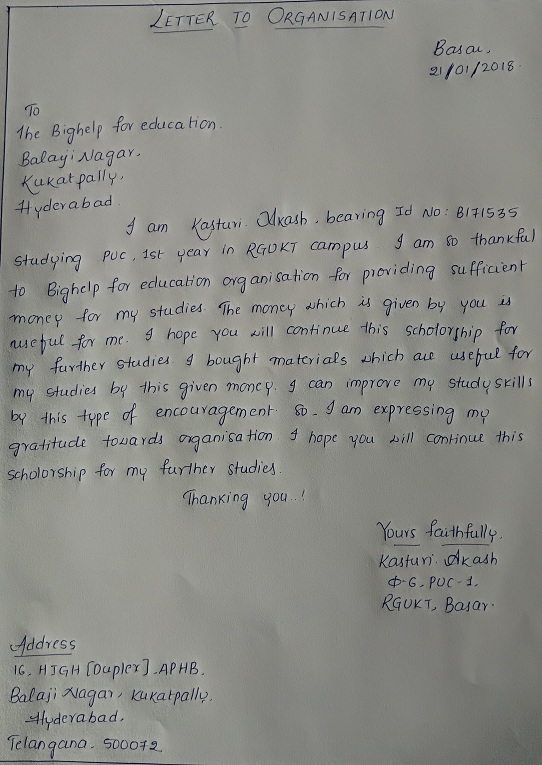 LETTER TO ORGANISATION
Basar,
21/01/2018.
To
The Bighelp for education.
Balaji Nagar,
Kukatpally,
Hyderabad.
I am Kasturi. Akash. bearing Id No: B171535
studying PUC, 1st year in RGUKT campus. I am so thankful
to Bighelp for education organisation for providing sufficient
money for my studies. The money which is given by you is
useful for me. I hope you will continue this scholorship for
my further studies I bought materials which are useful for
my studies by this given money. I can improve my study skills
by this type of encouragement. So. I am expressing my
gratitude towards organisation I hope you will continue this
scholorship for my further studies.
Thanking you..!
Yours faithfully.
Kasturi. Akash
Φ-6, PUC-1,
RGUKT, Basar.
Address
16. HIGH [Duplex]. APHB.
Balaji Nagar, Kukatpally.
Hyderabad.
Telangana. 500072.